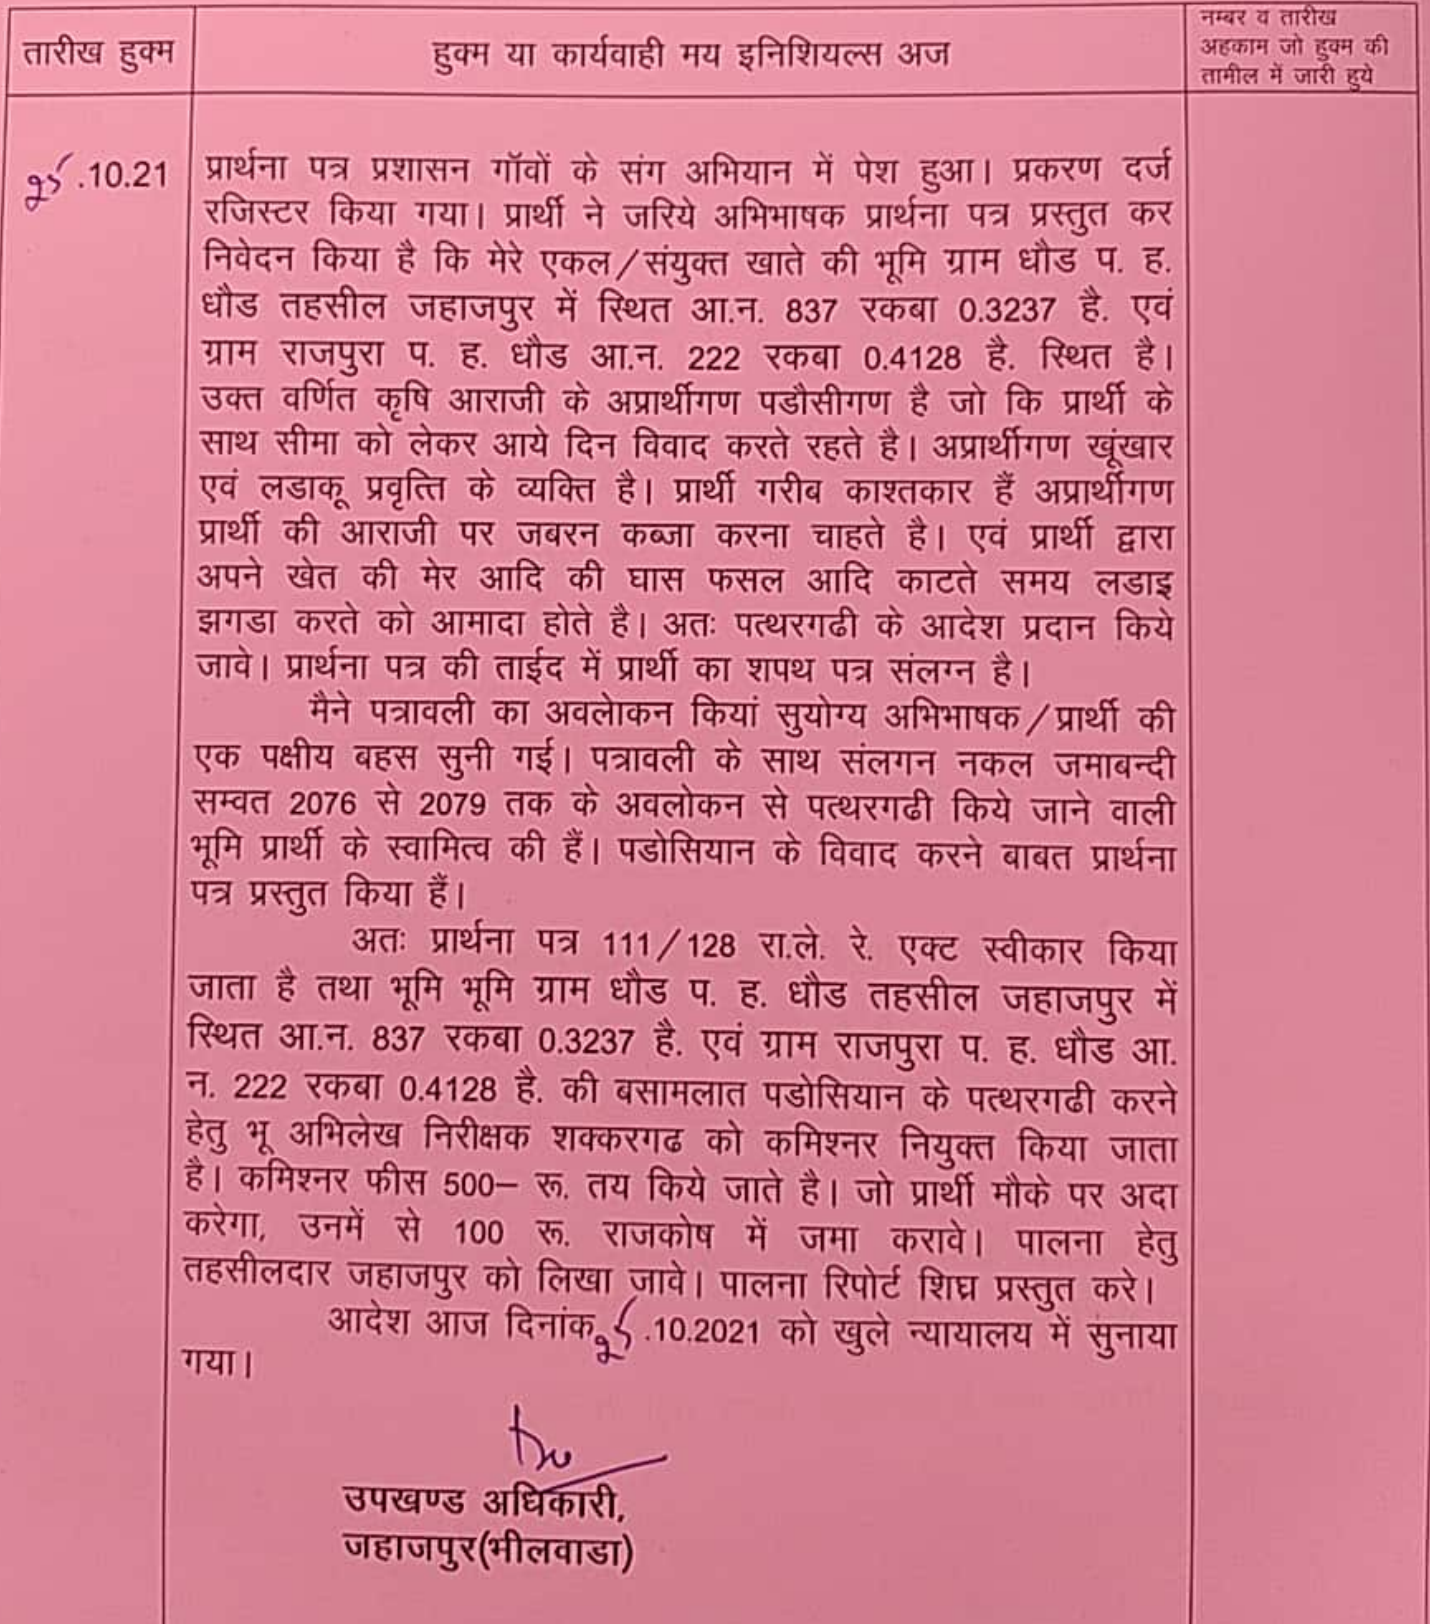 तारीख हुक्म
हुक्म या कार्यवाही मय इनिशियल्स अज
नम्बर व तारीख
अहकाम जो हुक्म की
तामील में जारी हुये
25.10.21
प्रार्थना पत्र प्रशासन गॉवों के संग अभियान में पेश हुआ। प्रकरण दर्ज
रजिस्टर किया गया। प्रार्थी ने जरिये अभिभाषक प्रार्थना पत्र प्रस्तुत कर
निवेदन किया है कि मेरे एकल/संयुक्त खाते की भूमि ग्राम धौड प. ह.
धौड तहसील जहाजपुर में स्थित आ.न. 837 रकबा 0.3237 है. एवं
ग्राम राजपुरा प. ह. धौड आ.न. 222 रकबा 0.4128 है. स्थित है।
उक्त वर्णित कृषि आराजी के अप्रार्थीगण पडौसीगण है जो कि प्रार्थी के
साथ सीमा को लेकर आये दिन विवाद करते रहते है। अप्रार्थीगण खूंखार
एवं लडाकू प्रवृत्ति के व्यक्ति है। प्रार्थी गरीब काश्तकार हैं अप्रार्थीगण
प्रार्थी की आराजी पर जबरन कब्जा करना चाहते है। एवं प्रार्थी द्वारा
अपने खेत की मेर आदि की घास फसल आदि काटते समय लडाइ
झगडा करते को आमादा होते है। अतः पत्थरगढी के आदेश प्रदान किये
जावे। प्रार्थना पत्र की ताईद में प्रार्थी का शपथ पत्र संलग्न है।
मैने पत्रावली का अवलेाकन कियां सुयोग्य अभिभाषक/प्रार्थी की
एक पक्षीय बहस सुनी गई। पत्रावली के साथ संलगन नकल जमाबन्दी
सम्वत 2076 से 2079 तक के अवलोकन से पत्थरगढी किये जाने वाली
भूमि प्रार्थी के स्वामित्व की हैं। पडोसियान के विवाद करने बाबत प्रार्थना
पत्र प्रस्तुत किया हैं।
अतः प्रार्थना पत्र 111/128 रा.ले. रे. एक्ट स्वीकार किया
जाता है तथा भूमि भूमि ग्राम धौड प. ह. धौड तहसील जहाजपुर में
स्थित आ.न. 837 रकबा 0.3237 है. एवं ग्राम राजपुरा प. ह. धौड आ.
न. 222 रकबा 0.4128 है. की बसामलात पडोसियान के पत्थरगढी करने
हेतु भू अभिलेख निरीक्षक शक्करगढ को कमिश्नर नियुक्त किया जाता
है। कमिश्नर फीस 500– रू. तय किये जाते है। जो प्रार्थी मौके पर अदा
करेगा, उनमें से 100 रू. राजकोष में जमा करावे। पालना हेतु
तहसीलदार जहाजपुर को लिखा जावे। पालना रिपोर्ट शिघ्र प्रस्तुत करे।
आदेश आज दिनांक 25.10.2021 को खुले न्यायालय में सुनाया
गया।
उपखण्ड अधिकारी,
जहाजपुर(भीलवाडा)